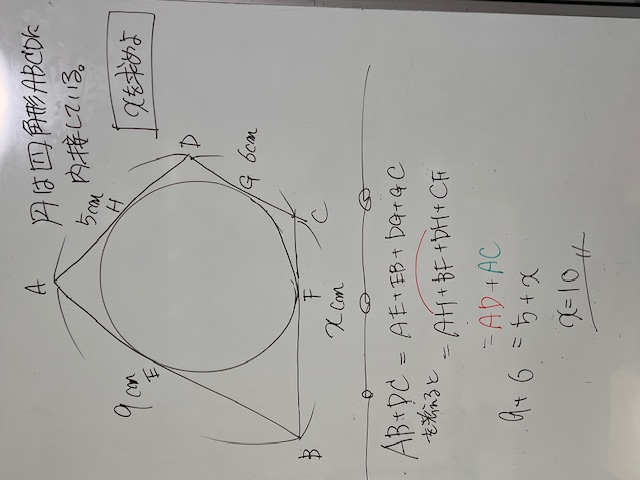 円は四角形ABCDに
内接している。
xを求めよ
A
5cm
H
D
9cm
E
G
6cm
B
F
C
xcm
AB+DC = AE+EB+DG+GC
= AH+BF+DH+CF
= AD+AC
9+6 = 5+x
x=10